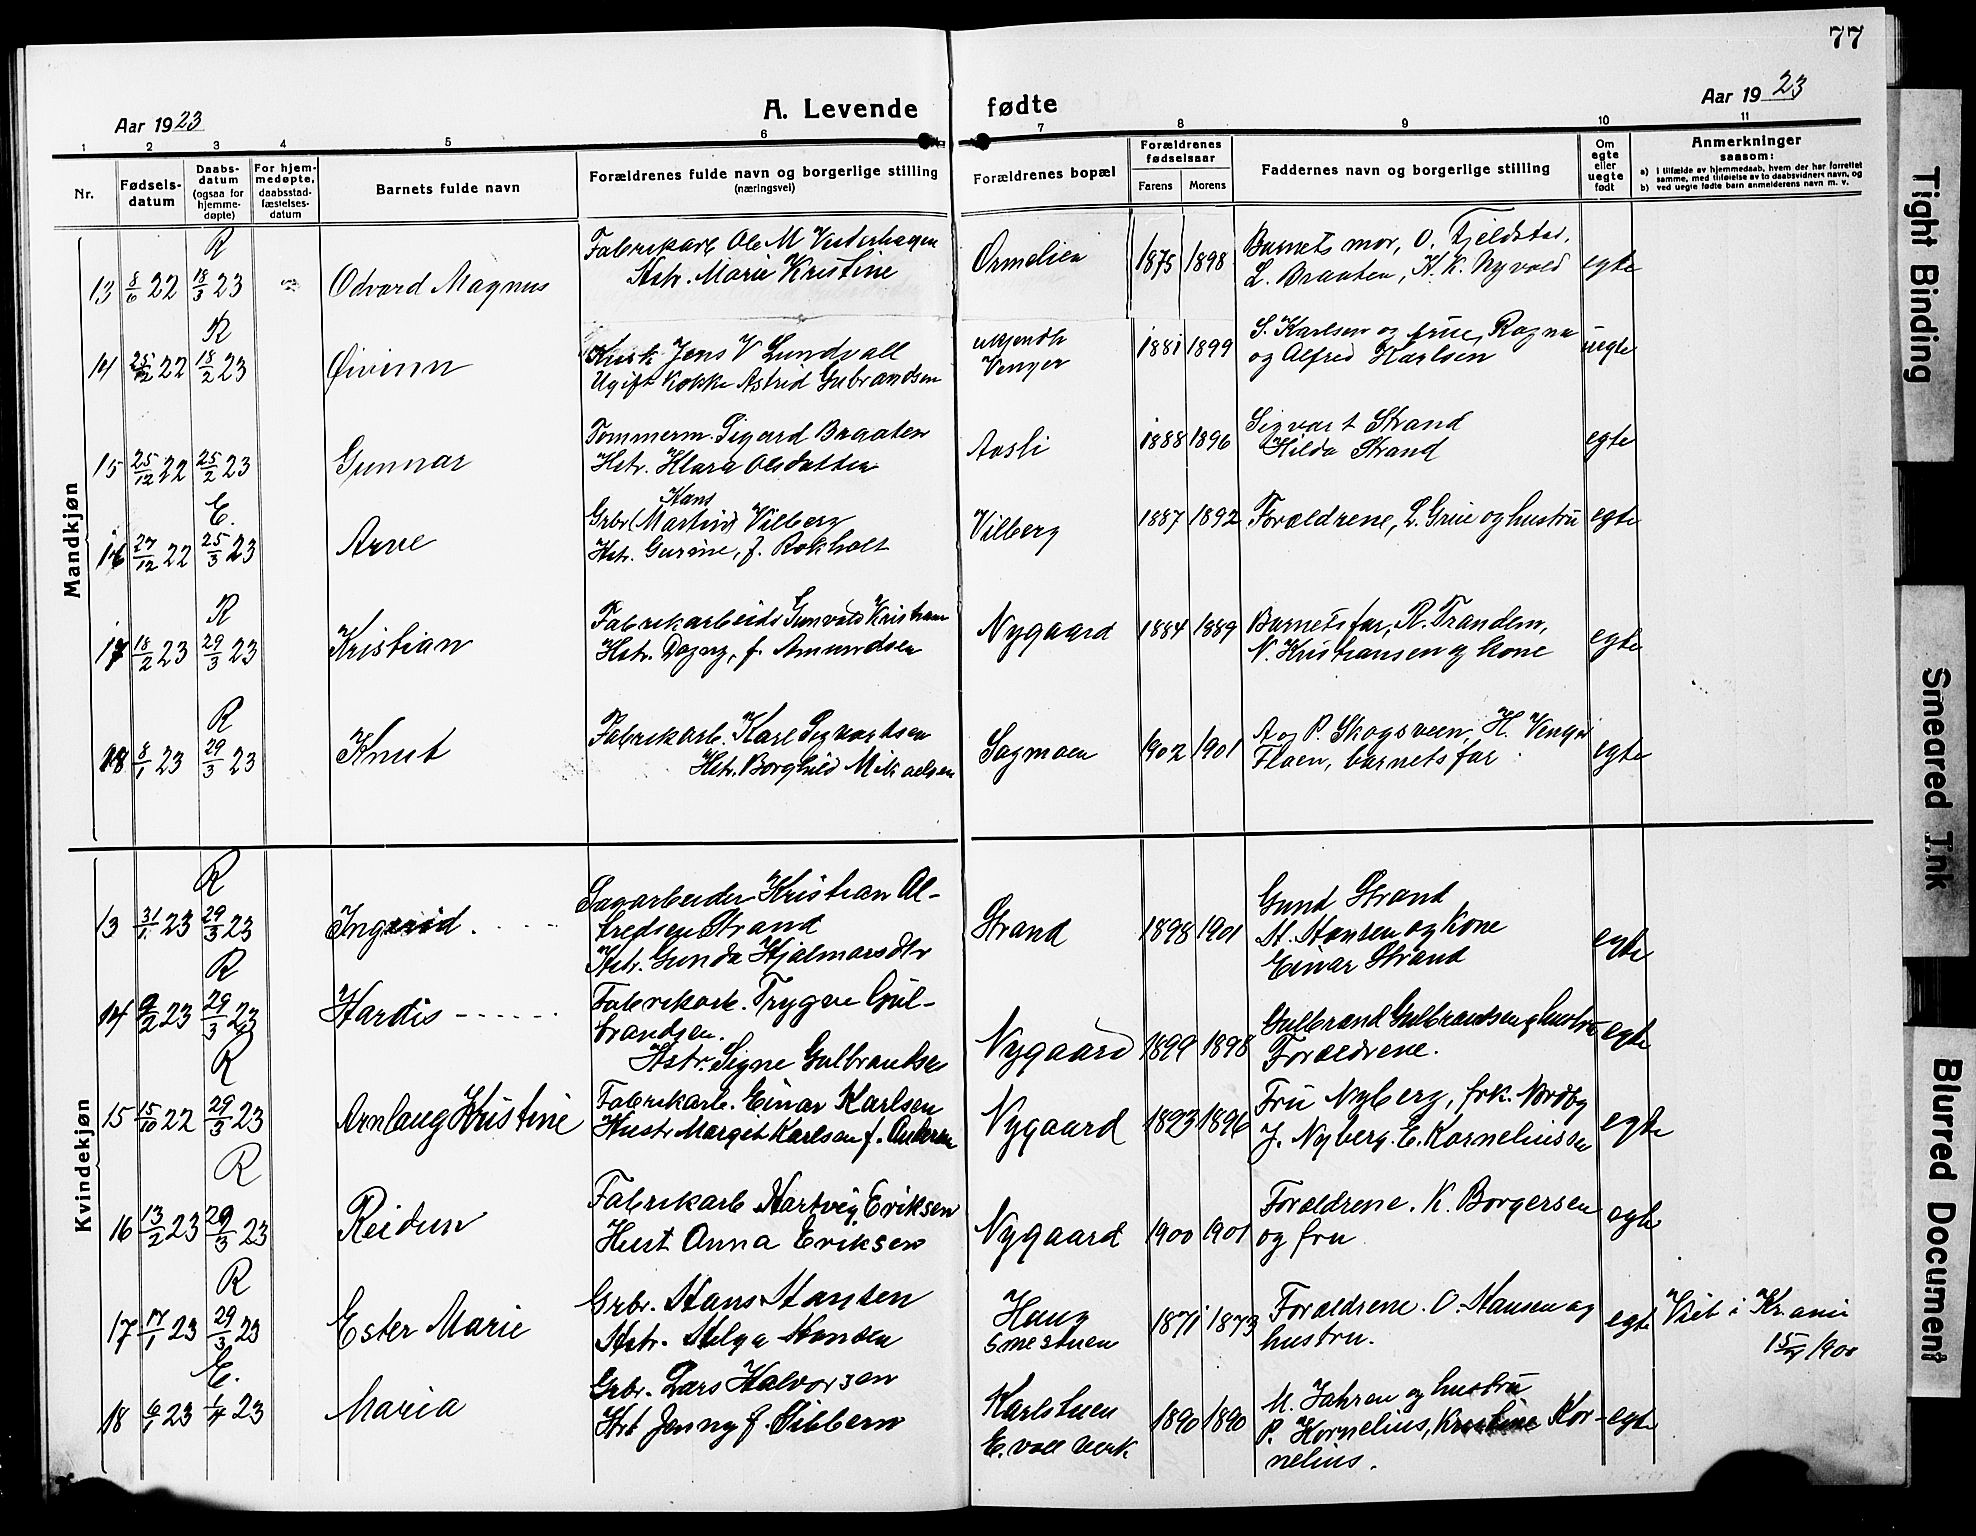 77
Aar 1923
A. Levende fødte
Aar 1923
1 2 3 4 5 6 7 8 9 10 11
Nr.
Fødsels-
datum
Daabs-
datum
(ogsaa for
hjemme-
døpte)
For hjem-
medøpte,
daabsstad-
fæstelses-
datum
Barnets fulde navn
Forældrenes fulde navn og borgerlige stilling
(næringsvei)
Forældrenes bopæl
Forældrenes
fødselsaar
Farens Morens
Faddernes navn og borgerlige stilling
Om
egte
eller
uegte
født
Anmerkninger
saasom:
a) I tilfælde av hjemmedaab, hvem der har forrettet
samme, med tilføielse av to daabsvidners navn, og
b) ved uegte fødte barn anmelderens navn m. v.
Mandkjøn
R
Fabrikarb Ole M Vesterhagen Barnets mor, O. Fjeldstad,
13 8/6 22 18/3 23 Odvard Magnus Hstr. Marie Kristine Ormelien 1875 1898 L. Braaten, K. K. Nyvold egte
R
Jens V Lundvall ukjendt S. Karlsen og frue, Ragna
14 22 18/2 23 Øivinn Ugift kokke Astrid Gubrandsen Venger 1881 1899 og Alfred Karlsen uegte
Tommerm. Sigurd Braaten Sigvart Strand
15 25/12 22 25/2 23 Gunnar Hstr. Klara Olsdatter Aasli 1888 1896 Hilda Strand egte
E. Hans
Grbr (Martin) Vilberg
16 27/12 22 25/3 23 Arve Hstr. Gurine, f. Rokholt Vilberg 1887 1892 Forældrene, L. Grue og hustru egte
R
Fabrikarbeid. Gunvald Kristian Barnets far, R. Trandem,
17 18/2 23 29/3 23 Kristian Hstr. Dagny, f. Amundsen Nygaard 1884 1889 N. Kristiansen og kone egte
R
Fabrikarb. Karl Sigvartsen A og P. Skogsveen, H. Venger
18 8/1 23 29/3 23 Knut Hstr. Borghild Mikaelsen Sagmoen 1902 1901 Floen, barnets far egte
Kvindekjøn
R
Sagarbeider Kristian Al- Gund Strand
13 31/1 23 29/3 23 Ingrid fredsen Strand Strand 1898 1901 H. Hansen og kone egte
Hstr. Gunda Hjalmarsdtr Einar Strand
R
Fabrikarb. Trygve Gul- Gulbrand Gulbrandsen og hustru
14 9/2 23 29/3 23 Hardis brandsen. Nygaard 1899 1898 Forældrene. egte
Hstr. Signe Gulbrandsen
R
Fabrikarb. Einar Karlsen Fru Nyberg, frk. Nordby
15 15/10 22 29/3 23 Arnlaug Kristine Hustr Margit Karlsen f. Nygaard 1893 1896 J. Nyberg. E. Korneliussen egte
R
Fabrikarb Hartvig Eriksen Forældrene. K. Borgersen
16 13/2 23 29/3 23 Reidun Hust Anna Eriksen Nygaard 1900 1901 og fru egte
R
Grbr. Hans Hansen Haug Forældrene. O. Hansen og Viet i Kr.ania
17 17/1 23 29/3 23 Ester Marie Hstr. Helga Hansen Smestuen 1871 1873 hustru. egte 15/4 1900
E.
Grbr. Lars Halvorsen Karlstuen M. Jahren og hustru
18 6/1 23 1/4 23 Maria Hst Jenny f. Sibbern E.voll verk 1890 1890 P. Kornelius, Kristine Kor- egte
nelius.
Tight Binding
Smeared Ink
Blurred Document